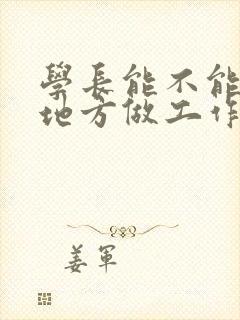 學長能不能
地方做工作
姜軍